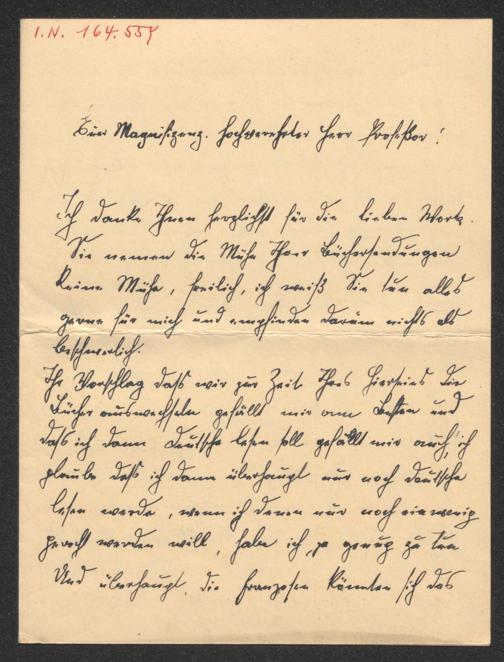 I.N. 164.557
Euer Magnifizenz. Hochverehrter Herr Profeßor!
Ich danke Ihnen herzlichst für die lieben Worte.
Sie nennen die Mühe Ihrer Büchersendungen
keine Mühe, freilich, ich weiß Sie tun alles
gerne für mich und empfinden darum nichts als
beschwerlich.
Ihr Vorschlag daß wir zur Zeit Ihres Hierseins die
Bücher auswechseln gefällt mir am Besten und
daß ich dann Deutsche lesen soll gefällt mir auch, ich
glaube daß ich dann überhaupt nur noch deutsche
lesen werde, wenn ich denen nur noch ein wenig
gerecht werden will, habe ich ja genug zu tun
Und überhaupt, die Franzosen könnten sich das